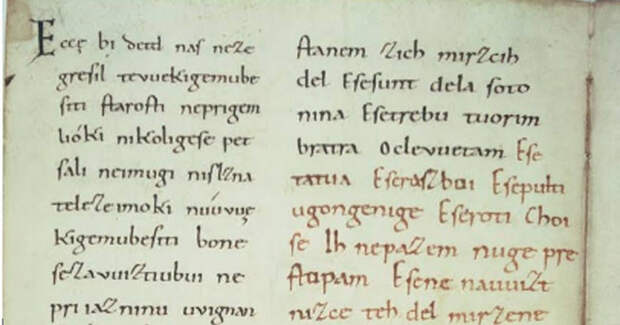 Eccę bi detd naſ neze
greſil tevuekigemube
ſiti ſtaroſti neprigem
lióki nikoligeſe pet
ſali neimugi niſlzna
teleze imoki núúvvę
kigemubeſiti bone
ſezavuiztiubui ne
priiazninu uvignan
ſtanem zich mirzcih
del Eſeſunt dela ſoto
nina Eſetrebu tuorim
bratra Oclevuetam Eſe
tatua Eſerazboi Eſepulti
ugongenige Eſeroti Choi
ſe Ih nepazem nuge pre
ſtupam Eſene nauuizt
nizce teh del mirzene